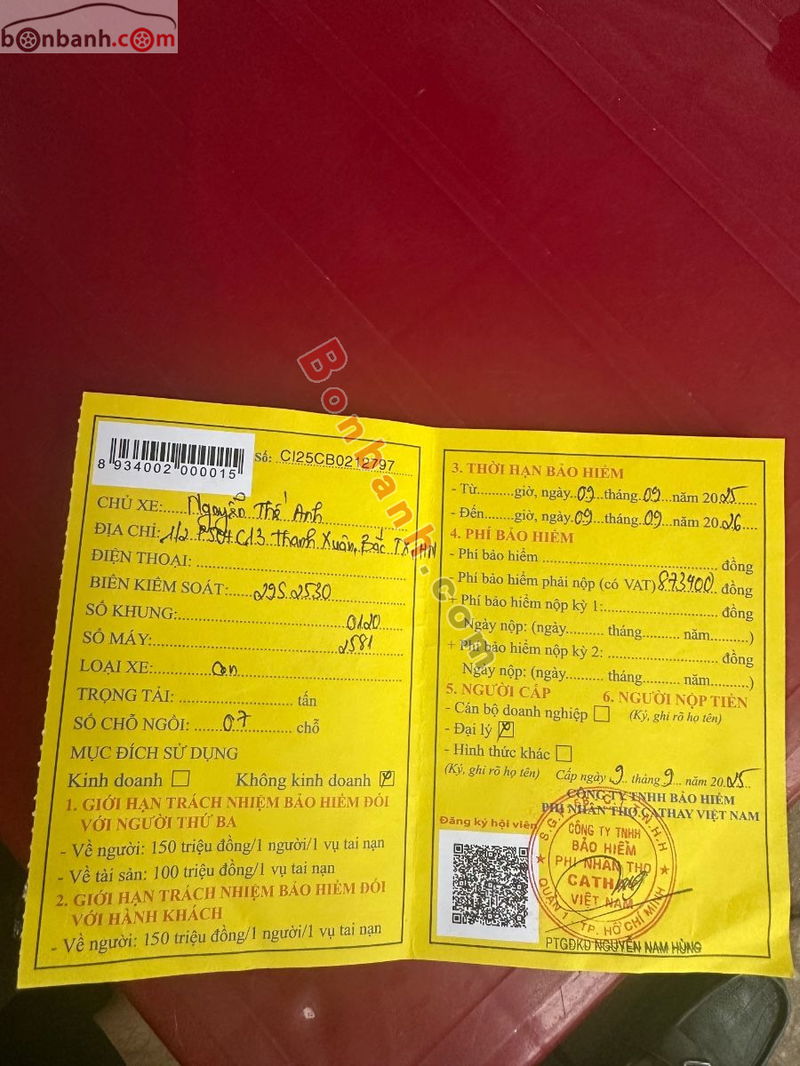 bonbanh.com
Bonbanh.com
8 934002 000015
Số: CI25CB0212797
CHỦ XE: Nguyễn Thế Anh
ĐỊA CHỈ: 1/2 P504 C13 Thanh Xuân, Bắc TX, HN
ĐIỆN THOẠI:
BIỂN KIỂM SOÁT: 29S 2530
SỐ KHUNG: 0120
SỐ MÁY: 2581
LOẠI XE: Con
TRỌNG TẢI: tấn
SỐ CHỖ NGỒI: 07 chỗ
MỤC ĐÍCH SỬ DỤNG
Kinh doanh Không kinh doanh
1. GIỚI HẠN TRÁCH NHIỆM BẢO HIỂM ĐỐI
VỚI NGƯỜI THỨ BA
- Về người: 150 triệu đồng/1 người/1 vụ tai nạn
- Về tài sản: 100 triệu đồng/1 vụ tai nạn
2. GIỚI HẠN TRÁCH NHIỆM BẢO HIỂM ĐỐI
VỚI HÀNH KHÁCH
- Về người: 150 triệu đồng/1 người/1 vụ tai nạn
3. THỜI HẠN BẢO HIỂM
- Từ.......giờ, ngày 09 tháng 09 năm 2025
- Đến......giờ, ngày 09 tháng 09 năm 2026
4. PHÍ BẢO HIỂM
- Phí bảo hiểm đồng
- Phí bảo hiểm phải nộp (có VAT) 873400 đồng
+ Phí bảo hiểm nộp kỳ 1: đồng
Ngày nộp: (ngày......... tháng......... năm.........)
+ Phí bảo hiểm nộp kỳ 2: đồng
Ngày nộp: (ngày......... tháng......... năm.........)
5. NGƯỜI CẤP 6. NGƯỜI NỘP TIỀN
- Cán bộ doanh nghiệp (Ký, ghi rõ họ tên)
- Đại lý
- Hình thức khác
(Ký, ghi rõ họ tên) Cấp ngày 9 tháng 9 năm 2025
CÔNG TY TNHH BẢO HIỂM
PHI NHÂN THỌ CATHAY VIỆT NAM
Đăng ký hội viên
CÔNG TY TNHH
BẢO HIỂM
PHI NHÂN THỌ
CATHAY
VIỆT NAM
QUẬN 1 - TP. HỒ CHÍ MINH
PTGĐKD NGUYỄN NAM HÙNG